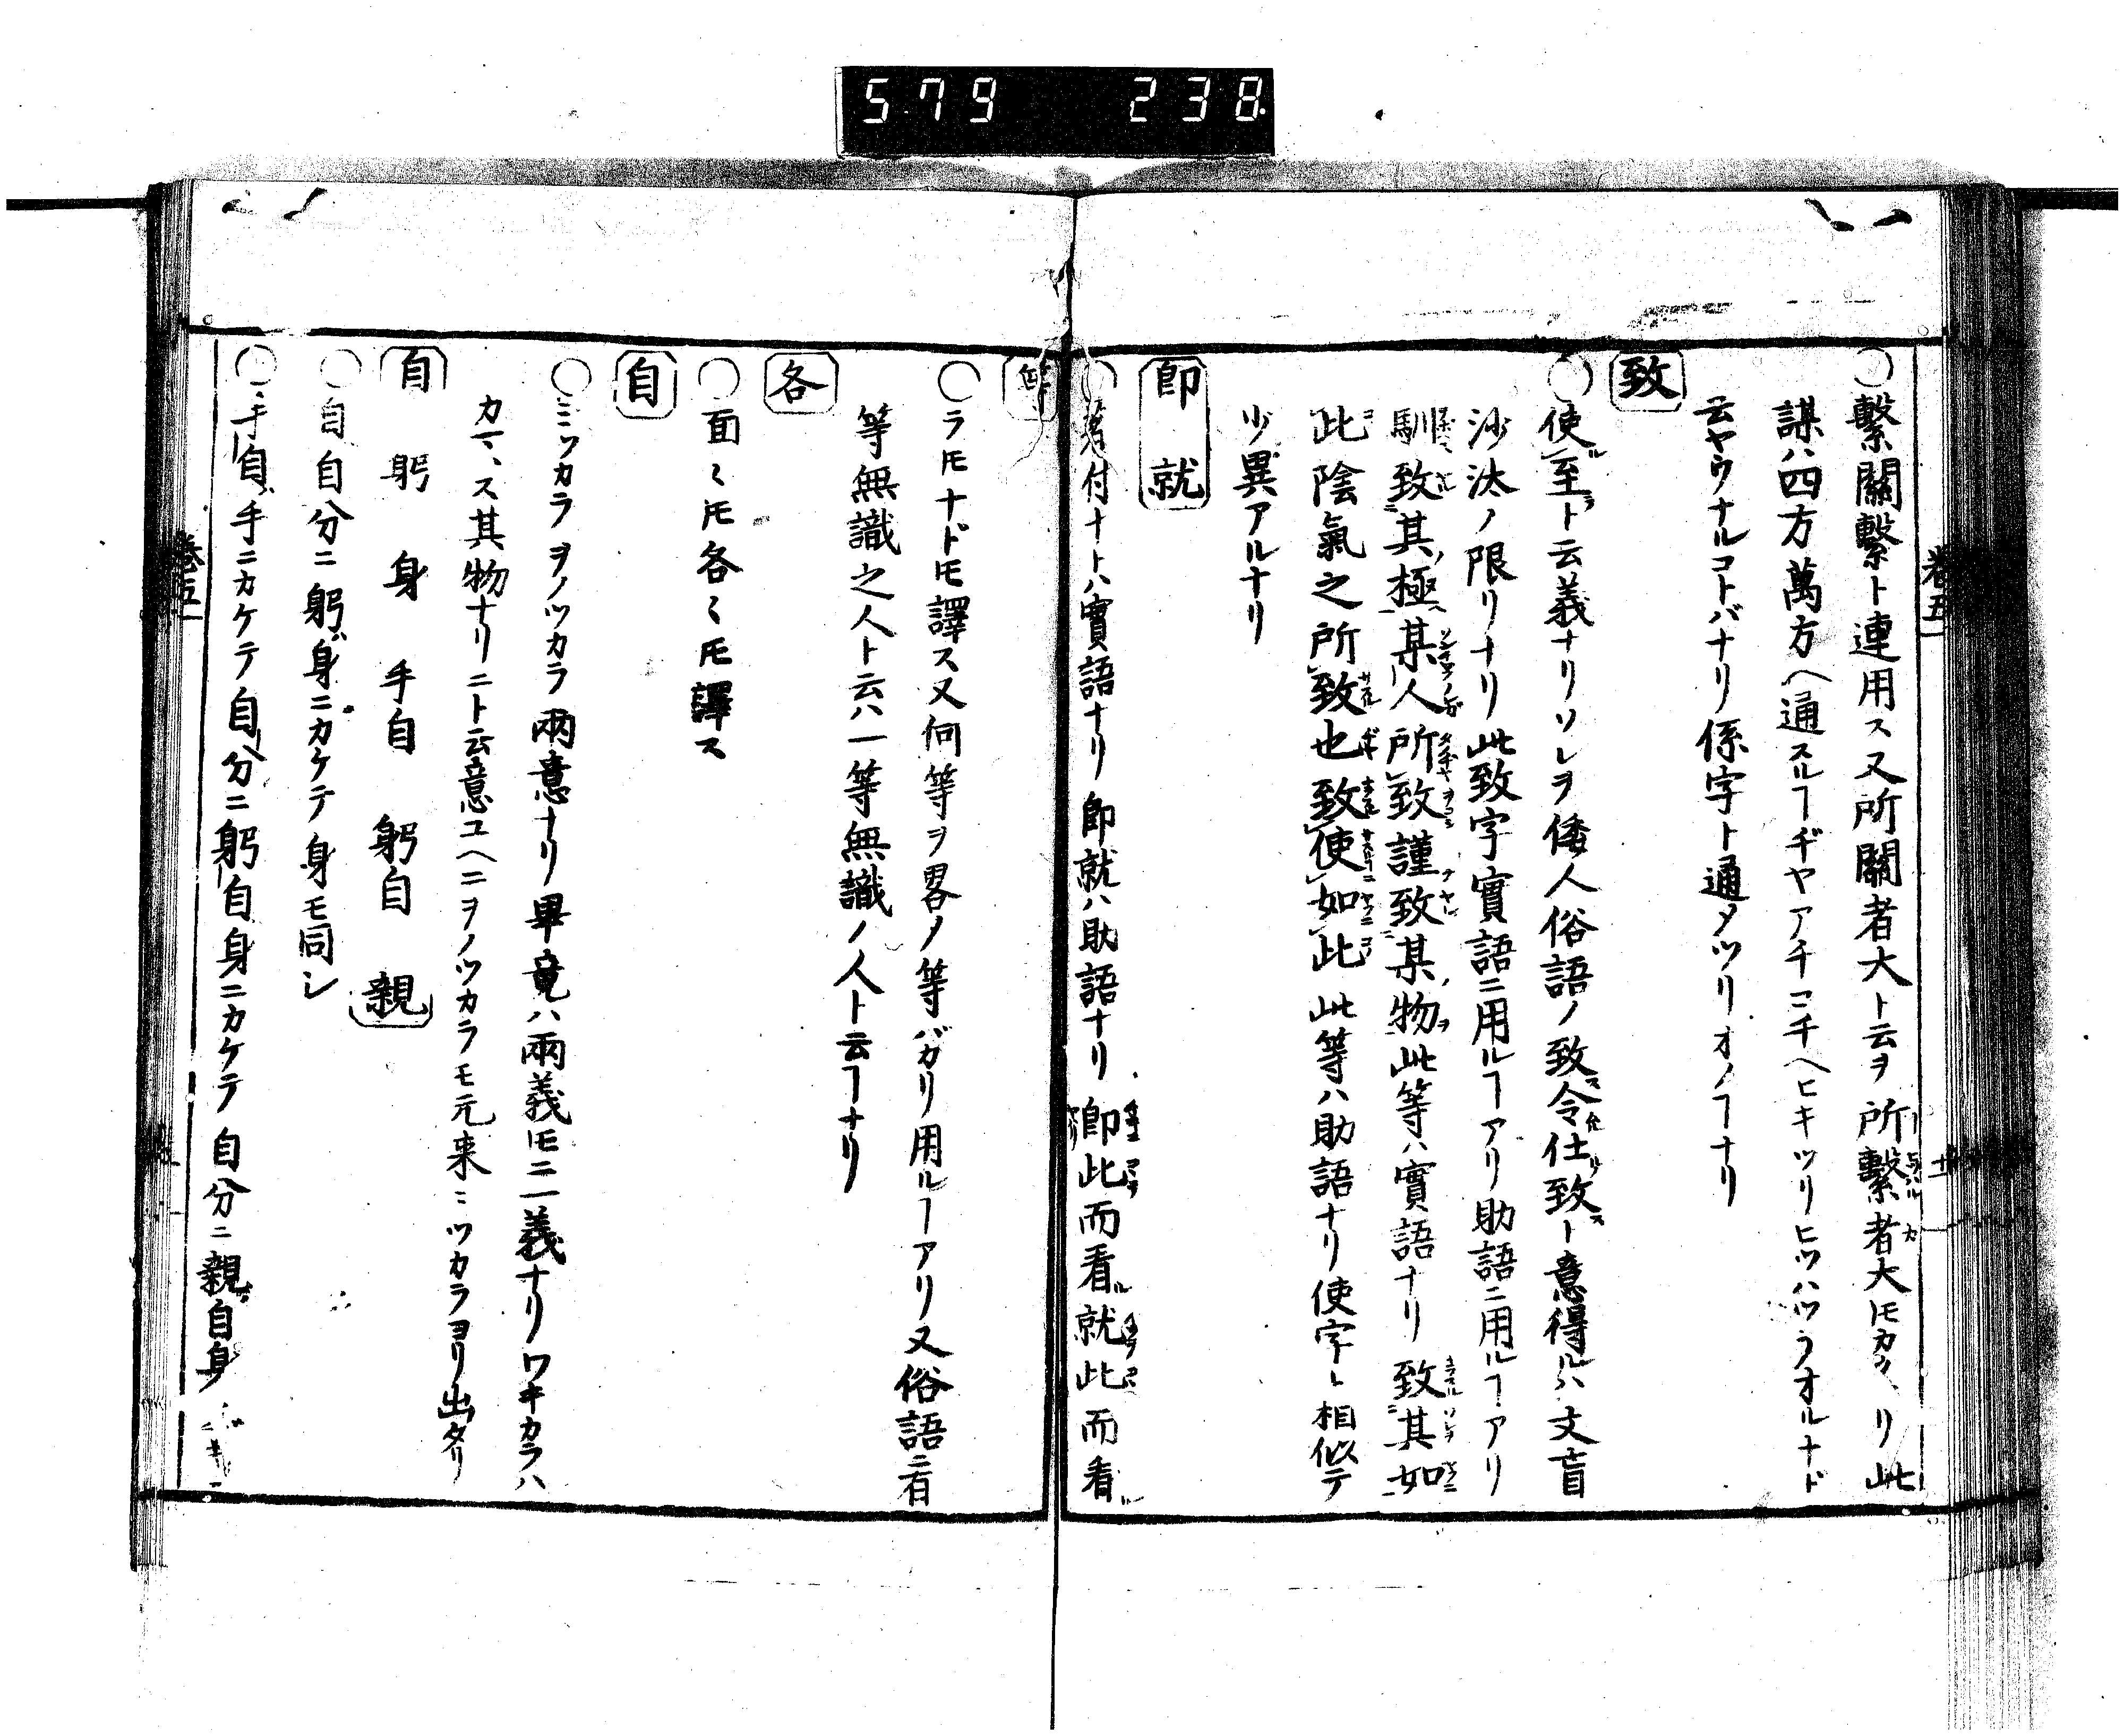 579 238
○繫關繫ト連用ス又所關者大ト云ヲ所繫者大モカヽリ此
謀ハ四方萬方ヘ通スルヿヂヤアチコチヘヒキツリヒツハツラオルナド
云ヤウナルコトバナリ係字ト通メツリオノヿナリ
致
○使至ト云義ナリソレヲ倭人俗語ノ致令仕致ト意得ルハ文盲
沙汰ノ限リナリ此致字實語ニ用ルヿアリ助語ニ用ルヿアリ
馴致其極某人所致謹致某物此等ハ實語ナリ致其如
此陰氣之所致也致使如此此等ハ助語ナリ使字ト相似テ
少異アルナリ
卽就
○著付ナトハ實語ナリ卽就ハ助語ナリ卽此而看就此而看
○ラ𪜈ナド𪜈譯ス又何等ヲ畧メ等バカリ用ルヿアリ又俗語ニ有
等無識之人ト云ハ一等無識ノ人ト云ヿナリ
各
○面〻𪜈各〻𪜈譯ス
自
○ミツカラヲノツカラ兩意ナリ畢竟ハ兩義𪜈ニ一義ナリワキカラハ
カマヽス其物ナリニト云意ユヘニヲノツカラモ元来ミツカラヨリ出タリ
自躬身手自躬自親
○自自分ニ躬身ニカケテ身モ同シ
○手自手ニカケテ自分ニ躬自身ニカケテ自分ニ親自身
卷五